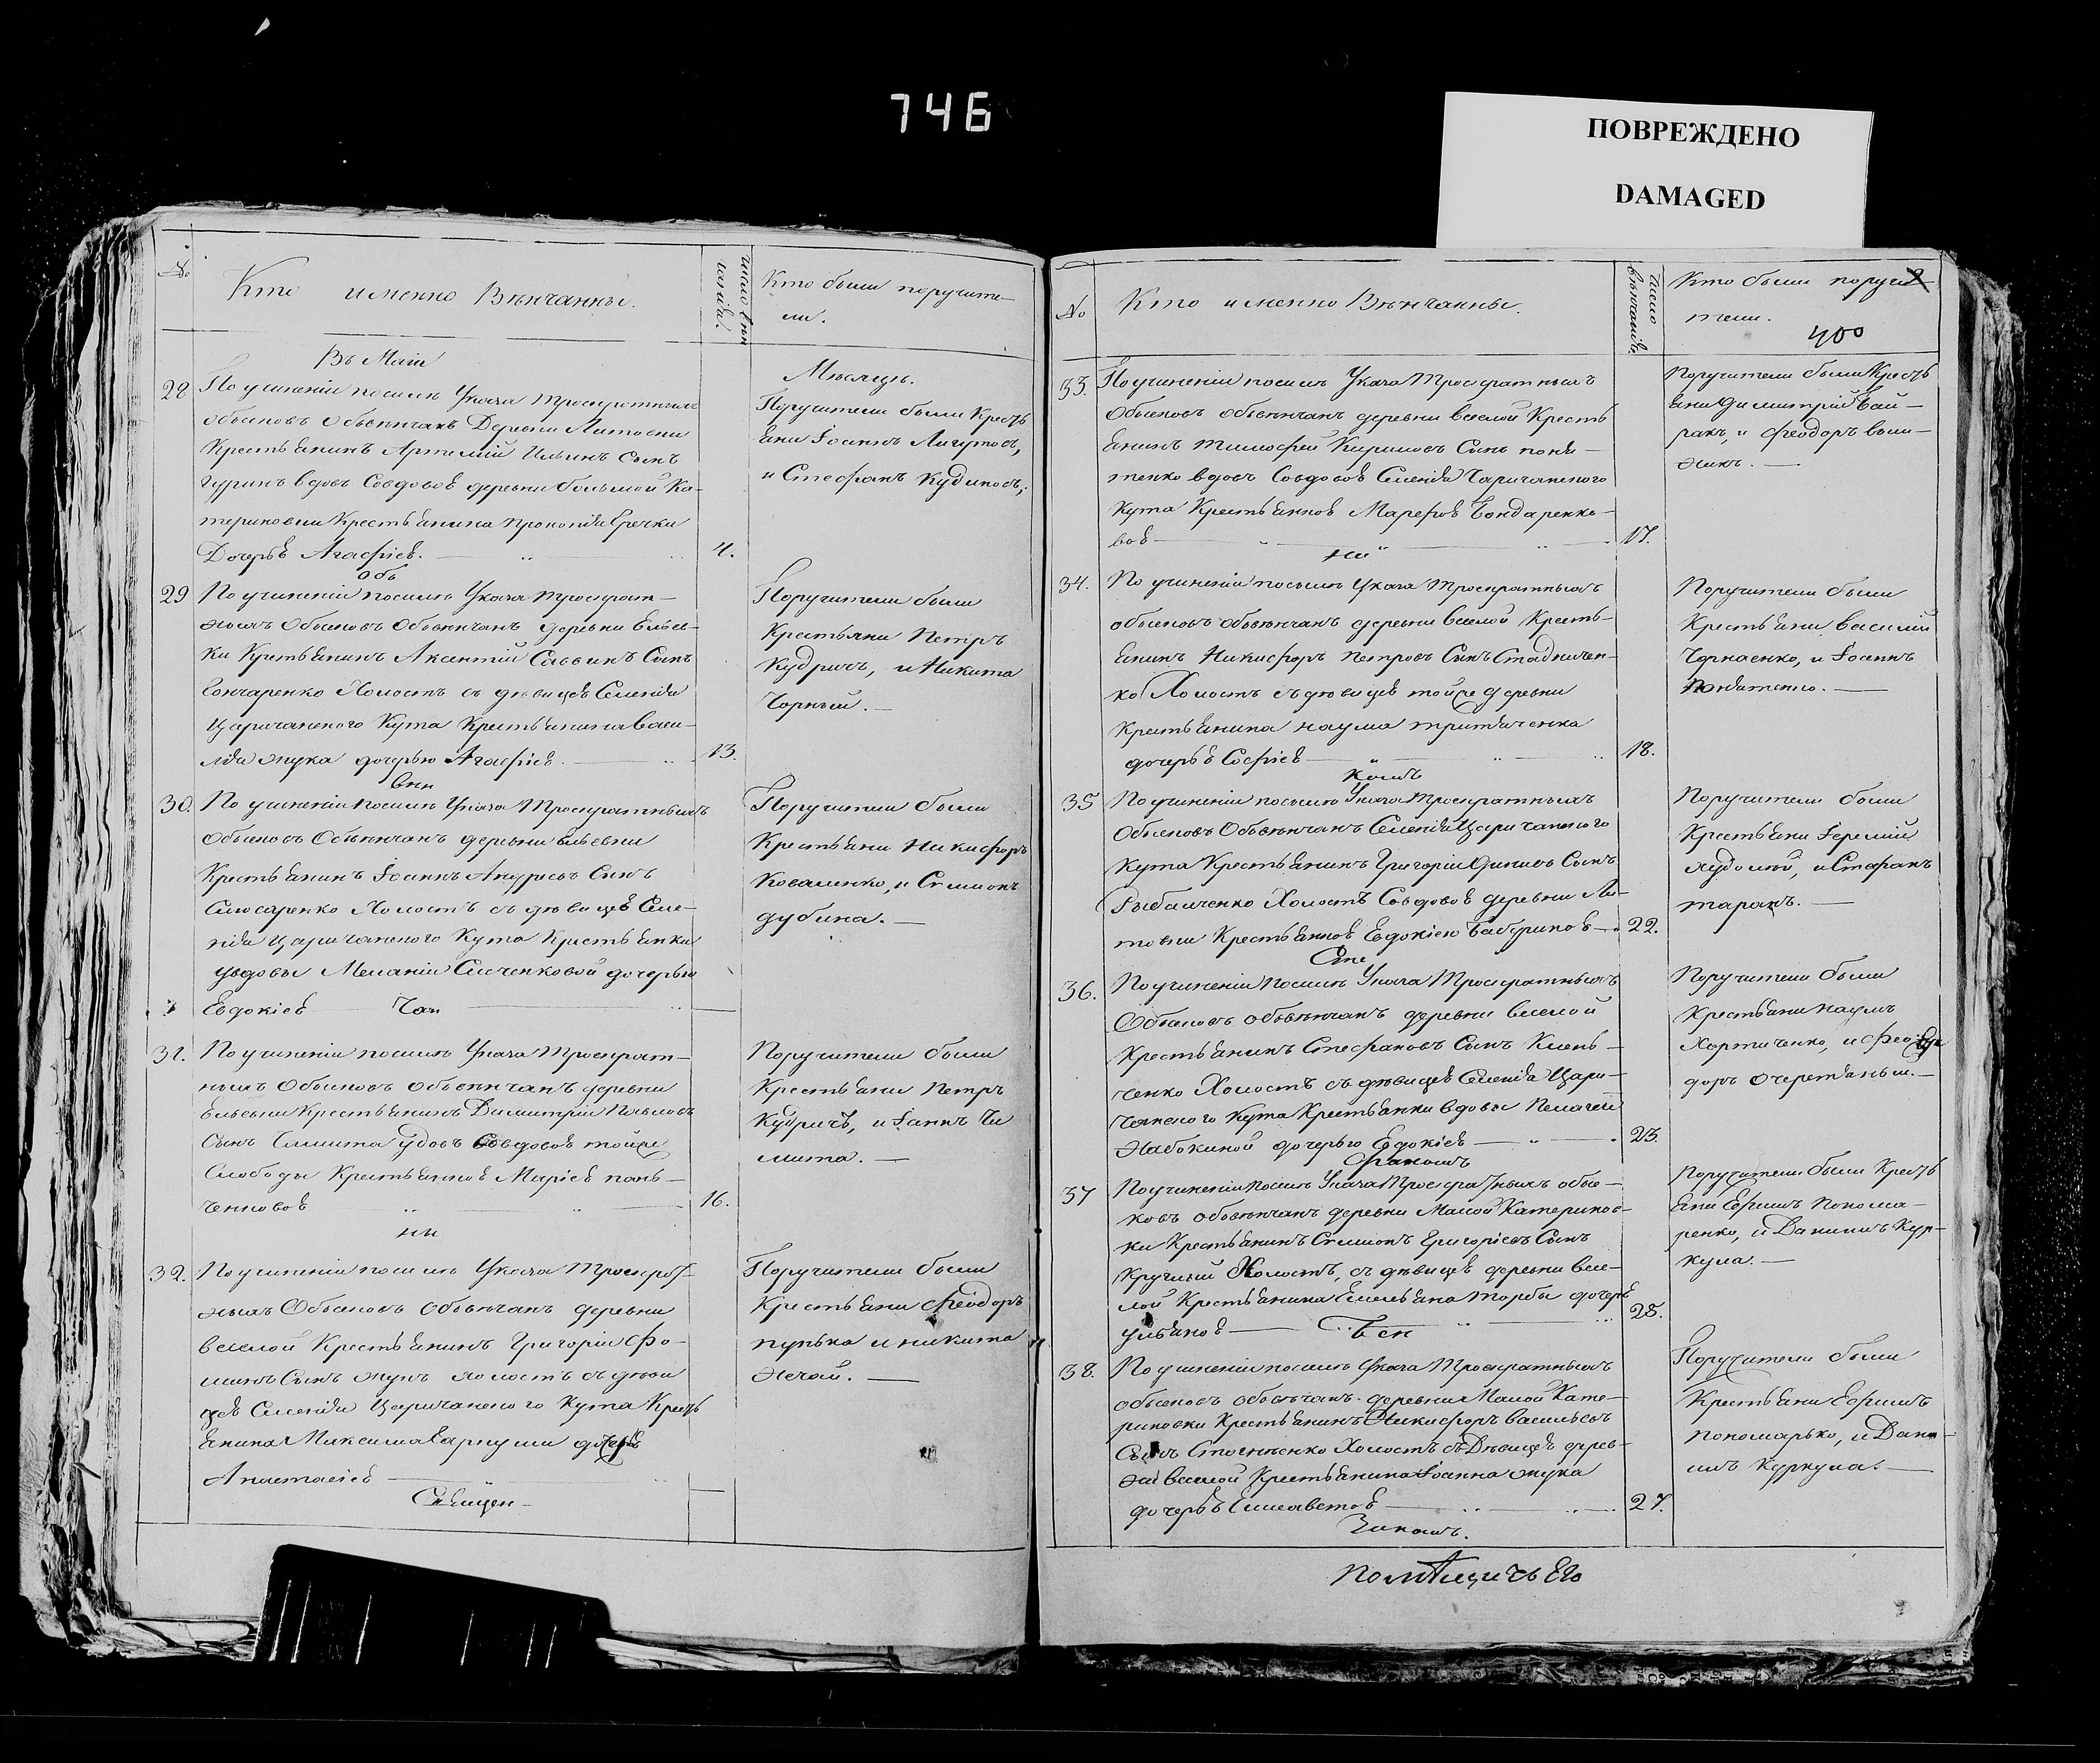 746
ПОВРЕЖДЕНО
DAMAGED
№
Кто именно Вѣнчанны.
Кто были поручите-
ли.
Въ Маіи
Мѣсяцѣ.
28
По учиненіи посилѣ Указа Троекратныхъ
обысковъ Обвѣнчанъ Деревни Литовки
Крестьянинъ Артемій Ильинъ Сынъ
вдовъ Совдовоѣ деревни большой Ка-
териновки Крестьянина Прокопія Гречки
Дочерью Агафіеѣ.
4.
Поручители были Кресть
яни Іоаннъ Личутовъ,
и Стефанъ Кудиновъ,
Объ
29
По учиненіи посилѣ Указа Троекрат-
ныхъ Обысковъ Обвѣнчанъ деревни Ельев-
ки Крестьянинъ Аксентій Саввинъ Сынъ
Гончаренко Холостъ съ дѣвицеѣ Селенія
Царичанского Кута Крестьянина Васи-
лія Жука дочерью Агафіеѣ.
13.
Поручители были
Крестьяни Петръ
Кудричъ, и Никита
Чорный.
вѣн
30.
По учиненіи посилѣ Указа Троекратныхъ
Обысковъ Обвѣнчанъ деревни Ельевки
Крестьянинъ Іоаннъ Андреевъ Сынъ
Слюсаренко Холостъ съ дѣвицеѣ Селе-
нія Царичанского Кута Крестьянки
удовы Меланіи Сиченковой дочерью
Евдокіеѣ
Чан
Поручители были
Крестьяни Никифоръ
Коваленко, и Симионъ
дубина.
31.
По учиненіи посилѣ Указа Троекрат-
ныхъ Обысковъ Обвѣнчанъ деревни
Ельевки Крестьянинъ Димитрій Павловъ
Сынъ удовъ Совдовоѣ тойже
Слободы Крестьянкоѣ Маріеѣ пань-
ченковоѣ
16.
Поручители были
Крестьяни Петръ
Кудричъ, и Іаннъ Чи
мита.
ны
32.
По учиненіи посилѣ Указа Троекрат-
ныхъ Обысковъ Обвѣнчанъ деревни
веселой Крестьянинъ Григорій Фо-
минъ Сынъ Жукъ холостъ съ дѣви
цеѣ Селенія Царичанского Кута Кресть
янина Максима дочерью
Анастасіеѣ
Священ-
Поручители были
Крестьяни Феодоръ
пупька и никита
Нечай.
№
Кто именно Вѣнчанны.
Число
вѣнчанія.
Кто были поручи-
тели.
400
33.
По учиненіи посилѣ Указа Троекратныхъ
Обысковъ обвѣнчанъ деревни веселой Кресть
янинъ Тимофей Кириловъ Сынъ поня-
тенко вдовъ Совдовоѣ Селенія Чаричанского
Кута Крестьянкоѣ Марефоѣ Бондаренко-
воѣ
17.
Поручители были Кресть
яни Димитрій Бай-
ракъ, и Феодоръ выш-
никъ.
ни
34.
По учиненіи посылѣ Указа Троекратныхъ
обысковъ обвѣнчанъ деревни веселой Кресть-
янинъ Никифоръ Петровъ Сынъ Стадничен-
ко Холостъ съ дѣвицеѣ тойже деревни
Крестьянина наума третяченка
дочерьѣ Софіеѣ
18.
Поручители были
Крестьяни Василій
Чернаенко, и Іоаннъ
Понятенко.
комъ
35
По учиненіи посылѣ Указа Троекратныхъ
Обысковъ Обвѣнчанъ Селенія Царичанского
Кута Крестьянинъ Григорій Сынъ
Рыбалченко Холостъ Совдовоѣ деревни Ли-
товки Крестьянкоѣ Евдокіею
22.
Поручители были
Крестьяни Іеремій
худолѣй, и Стефанъ
таранъ.
Сте
36.
По учиненіи посилѣ Указа Троекратныхъ
Обысковъ обвѣнчанъ деревни веселой
Крестьянинъ Стефановъ Сынъ Клень-
ченко Холостъ съ дѣвицеѣ Селенія Цари-
чанского Кута Крестьянки вдовы Пелагеи
Набокиной дочерью Евдокіеѣ
23.
Поручители были
Крестьяни наумъ
Хортиченко, и Фео
доръ очеретяный.
Фаномъ
37
По учиненіи посилѣ Указа Троекратныхъ обыс-
ковъ обвѣнчанъ деревни Малой Катеринов-
ки Крестьянинъ Симионъ Григоріевъ Сынъ
Кручий Холостъ, съ дѣвицеѣ деревни весе-
лой Крестьянина Емельяна торбы дочерь
ульяноѣ
25.
Поручители были Кресть
яни Ефимъ понома-
ренко, и Данилъ Кур-
кула.
Твен
38.
По учиненіи посилѣ Указа Троекратныхъ
обысковъ обвѣнчанъ деревни Малой Кате-
риновки Крестьянинъ Никифоръ Васильевъ
Сынъ Холостъ съ Дѣвицеѣ дерев-
ни веселой Крестьянина Іоанна жука
дочерьѣ Елисаветоѣ
27.
Поручители были
Крестьяни Ефимъ
пономарько, и Дани-
илъ Куркула.
Зинкомъ.
помѣщичьего